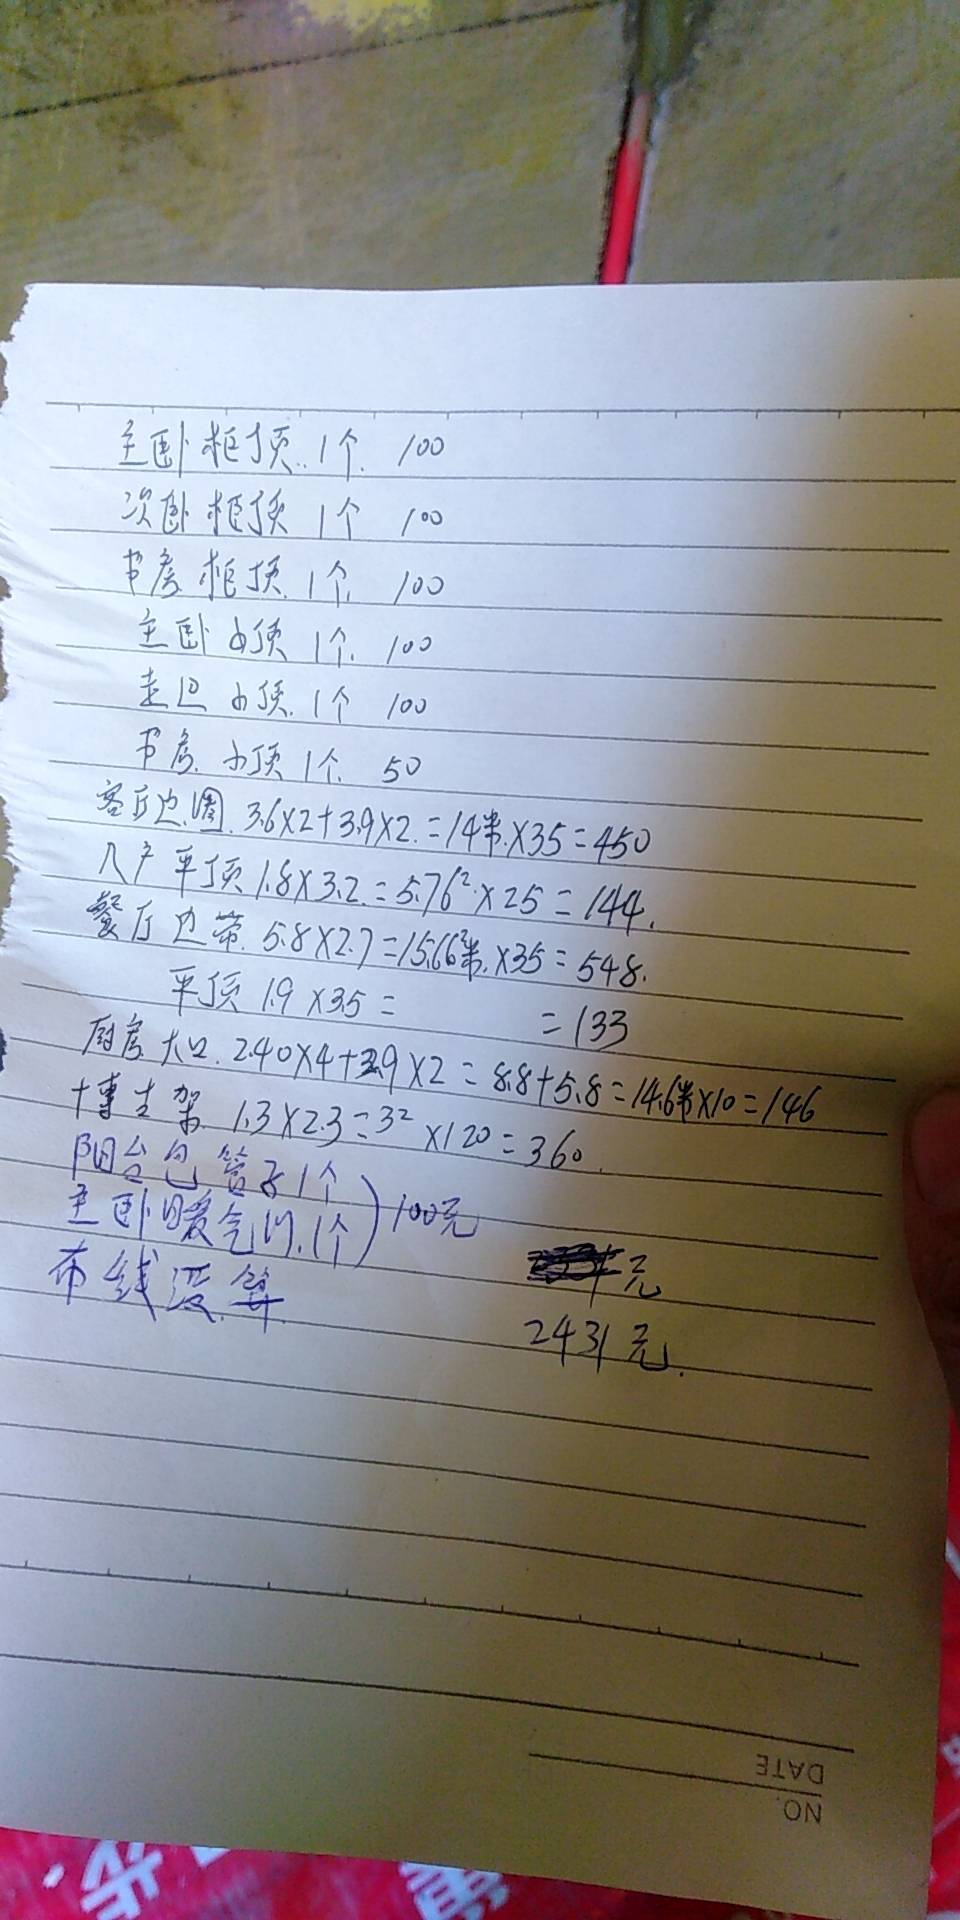 主卧柜顶 1个 100
次卧柜顶 1个 100
书房柜顶 1个 100
主卧小顶 1个 100
走 小顶 1个 100
书房 小顶 1个 50
客厅边圈 3.6×2+3.9×2=14米×35=450
入户平顶 1.8×3.2=5.76²×25=144
餐厅边带 5.8×2.7=15.66²米×35=548
平顶 1.9×35= =133
厨房 大口 2.40×4+2.9×2=8.8+5.8=14.6米×10=146
博古架 1.3×2.3=3²×120=360
阳台包管子1个
主卧暖气 1个 )100元
布线没算
元
2431元
DATE
NO.